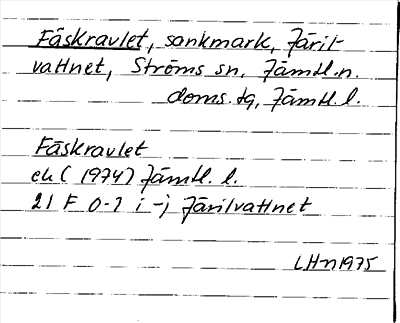 Fäskravlet, sankmark, Järil-
vattnet, Ströms sn, Jämtl. n.
doms. tg, Jämtl. l.
Fäskravlet
ek (1974) Jämtl. l.
21 F 0-1 i-j Järilvattnet
LHn 1975